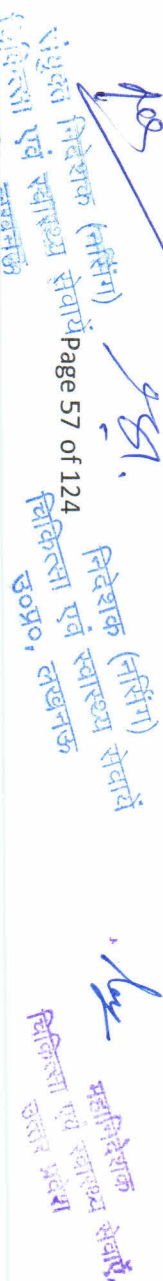 संयुक्त निदेशक (नर्सिंग)
चिकित्सा एवं स्वास्थ्य सेवायें
Page 57 of 124
निदेशक (नर्सिंग)
चिकित्सा एवं स्वास्थ्य सेवायें
उ०प्र०, लखनऊ
महानिदेशक
चिकित्सा एवं स्वास्थ्य सेवाएं,
उत्तर प्रदेश